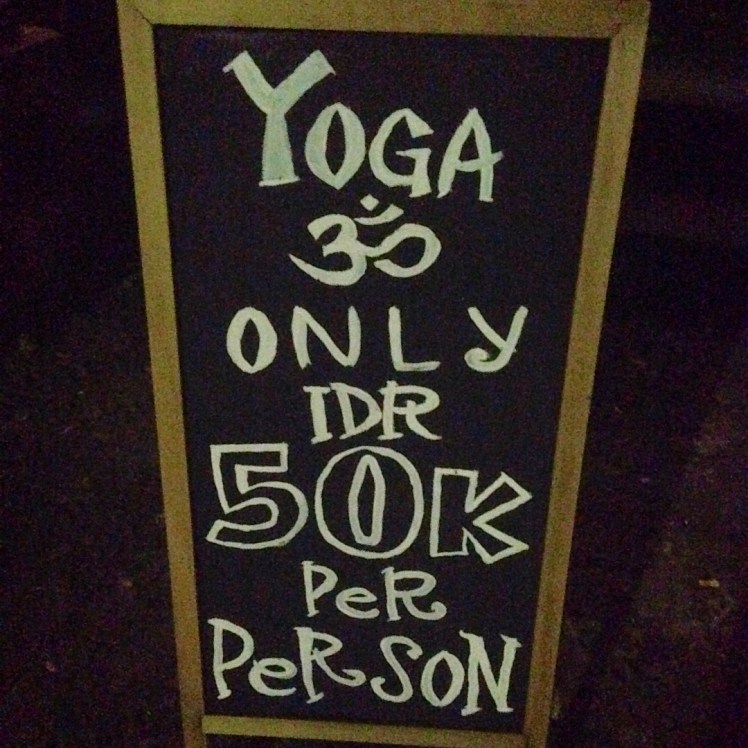 YOGA
ॐ
ONLY
IDR
50K
PeR
PeRSON